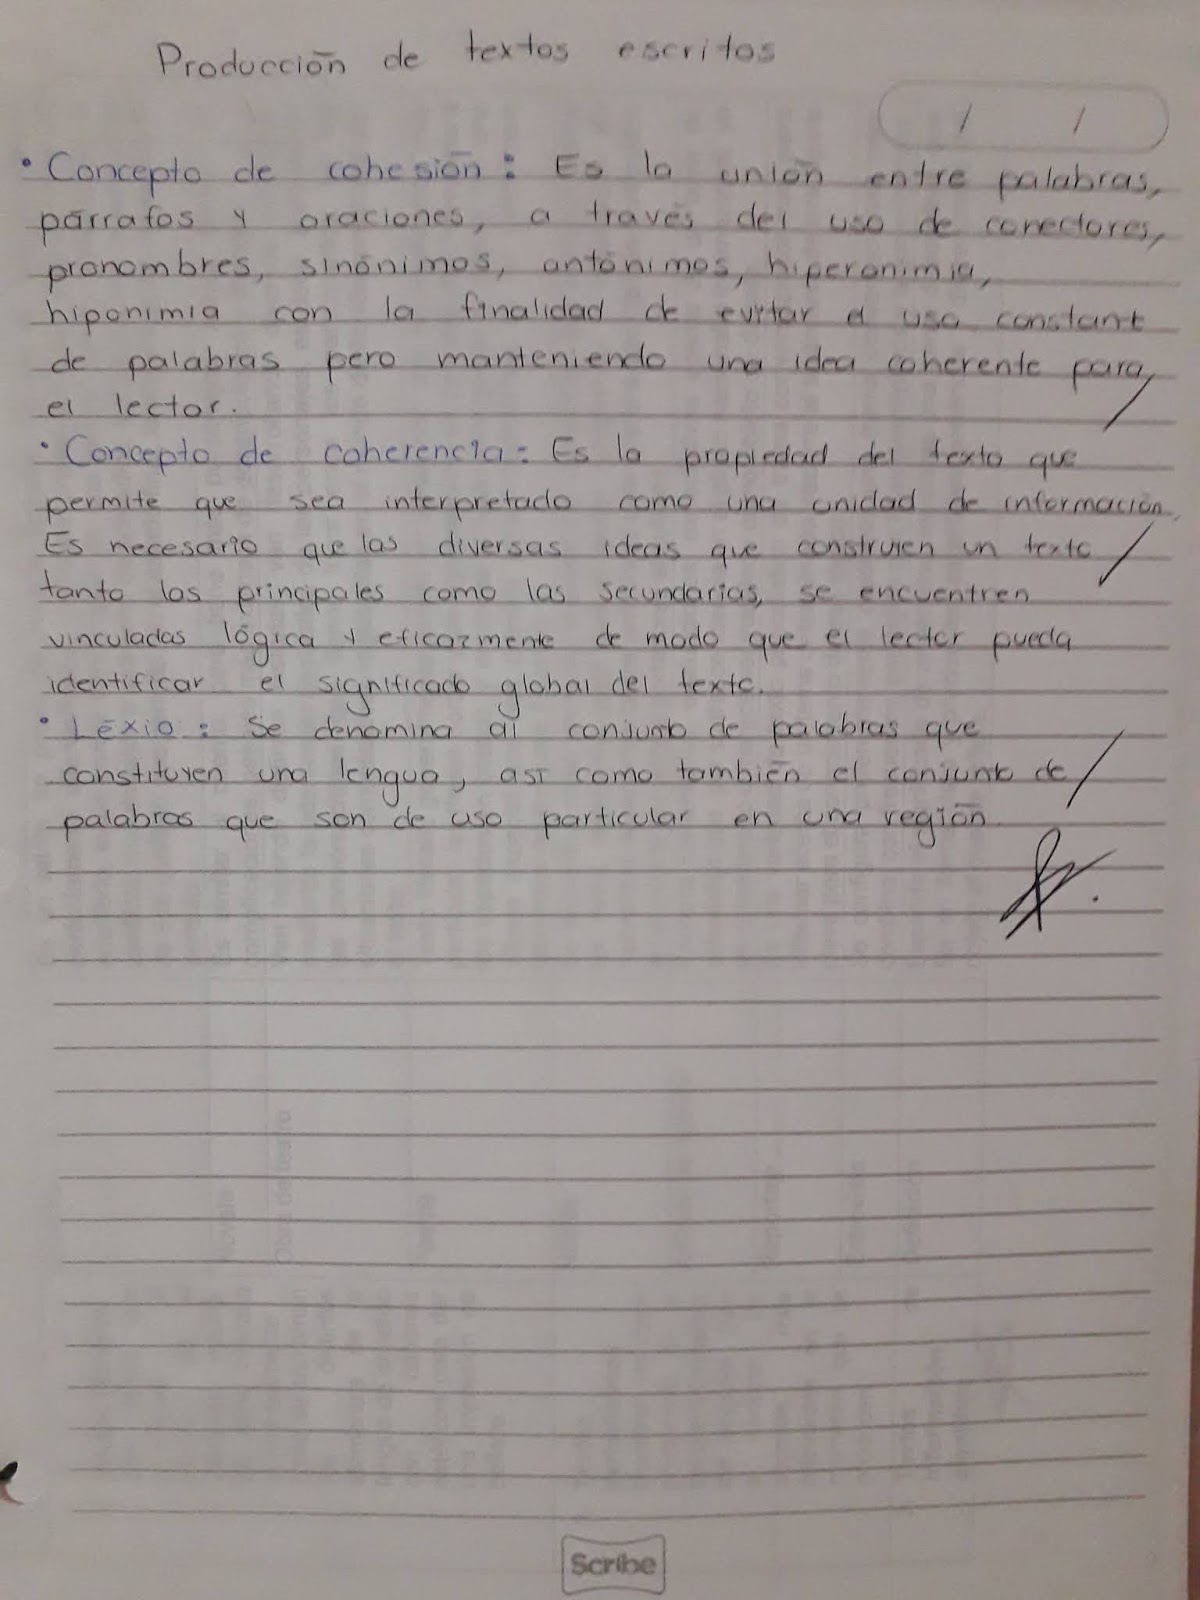 Producción de textos escritos
/ /
• Concepto de cohesión: Es la unión entre palabras,
párrafos y oraciones, a través del uso de conectores,
pronombres, sinónimos, antónimos, hiperonimia,
hiponimia con la finalidad de evitar el uso constant
de palabras pero manteniendo una idea coherente para
el lector.
• Concepto de coherencia: Es la propiedad del texto que
permite que sea interpretado como una unidad de información.
Es necesario que las diversas ideas que construyen un texto
tanto las principales como las secundarias, se encuentren
vinculadas lógica y eficazmente de modo que el lector pueda
identificar el significado global del texto.
• Léxio: Se denomina al conjunto de palabras que
constituyen una lengua, así como también el conjunto de
palabras que son de uso particular en una región.
Scribe